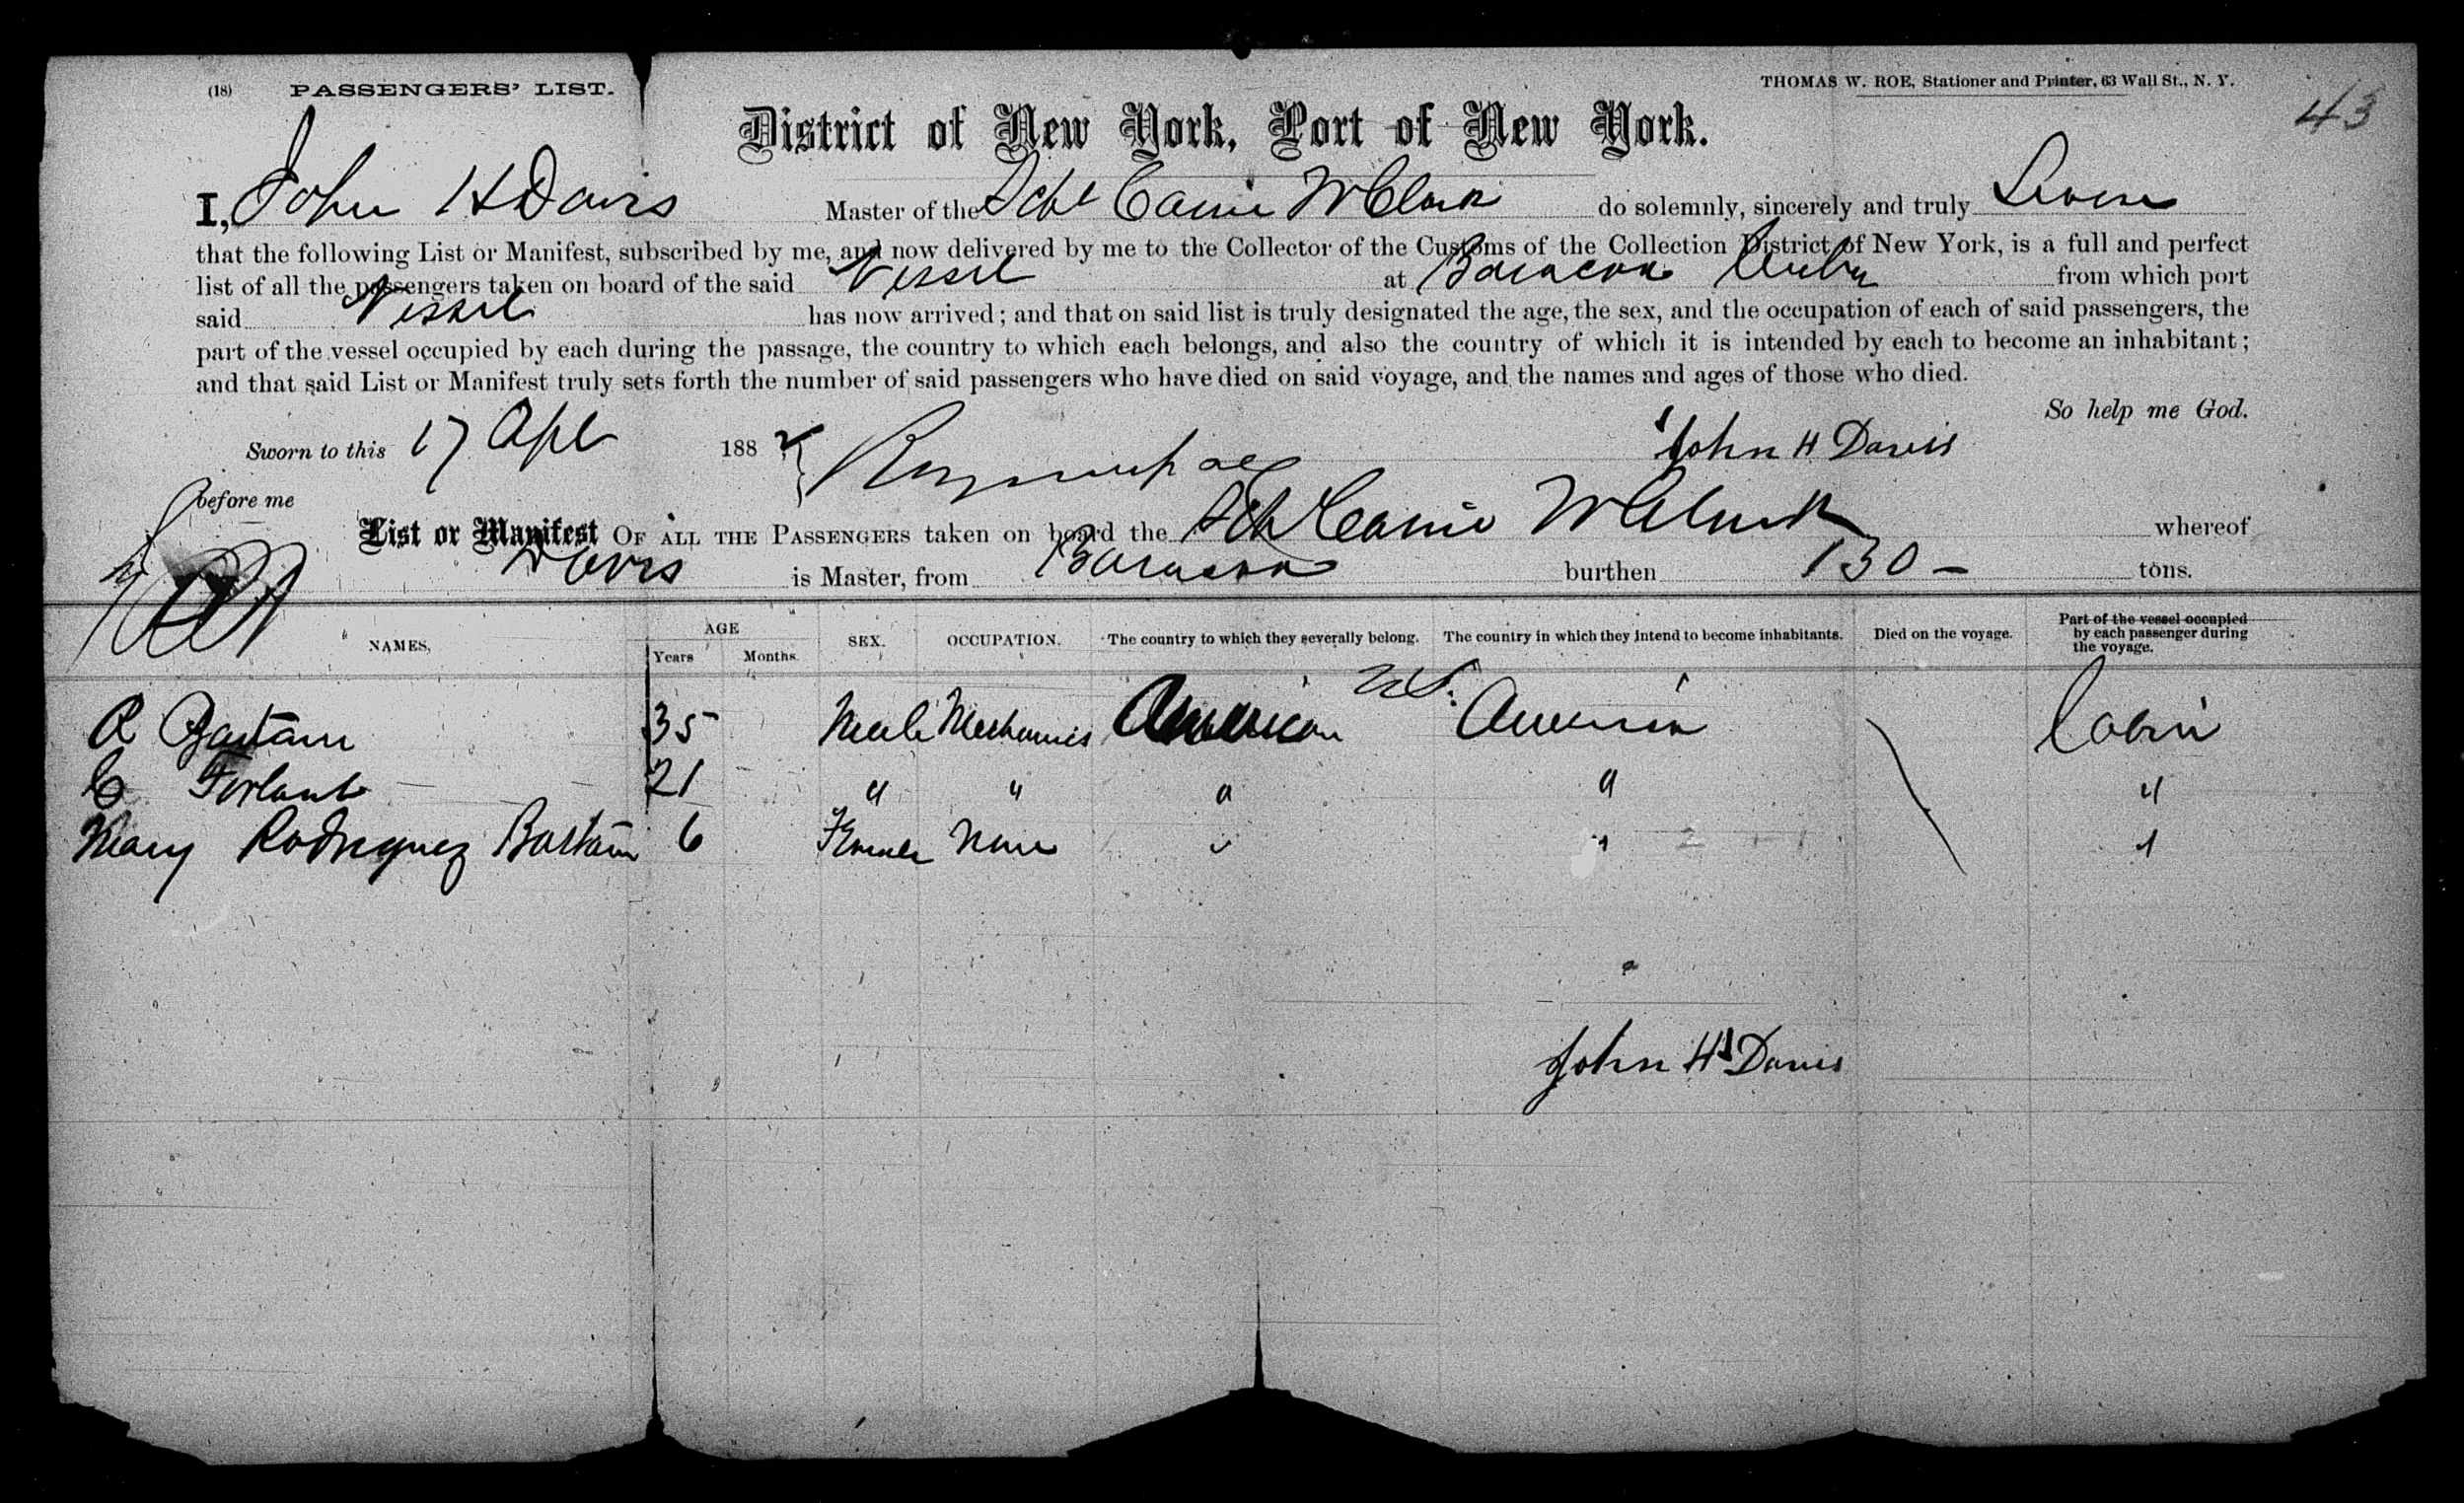 (18) PASSENGERS' LIST.
THOMAS W. ROE, Stationer and Printer, 63 Wall St., N. Y.
43
District of New York, Port of New York.
I, John H Davis Master of the Schr Carrie W Clark do solemnly, sincerely and truly Swear
that the following List or Manifest, subscribed by me, and now delivered by me to the Collector of the Customs of the Collection District of New York, is a full and perfect
list of all the passengers taken on board of the said Vessel at Baracoa Cuba from which port
said Vessel has now arrived; and that on said list is truly designated the age, the sex, and the occupation of each of said passengers, the
part of the vessel occupied by each during the passage, the country to which each belongs, and also the country of which it is intended by each to become an inhabitant;
and that said List or Manifest truly sets forth the number of said passengers who have died on said voyage, and the names and ages of those who died.
So help me God.
Sworn to this 17 Apl 1882 John H Davis
before me
List or Manifest OF ALL THE PASSENGERS taken on board the Sch Carrie W Clark whereof
Davis is Master, from Baracoa burthen 130 – tons.
NAMES. AGE Years Months. SEX. OCCUPATION. The country to which they severally belong. The country in which they intend to become inhabitants. Died on the voyage. Part of the vessel occupied by each passenger during the voyage.
U.S.
R 35 Male Mechanics American America Cabin
C 21 " " " " "
Mary Rodriquez Bastam 6 Female None " " "
John H Davis